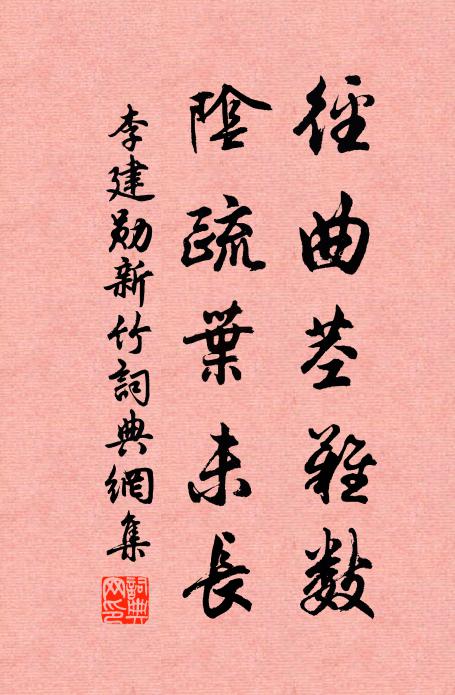 徑曲莖難數
陰疏葉未長
李建勛新竹詞典網集
詞典网印